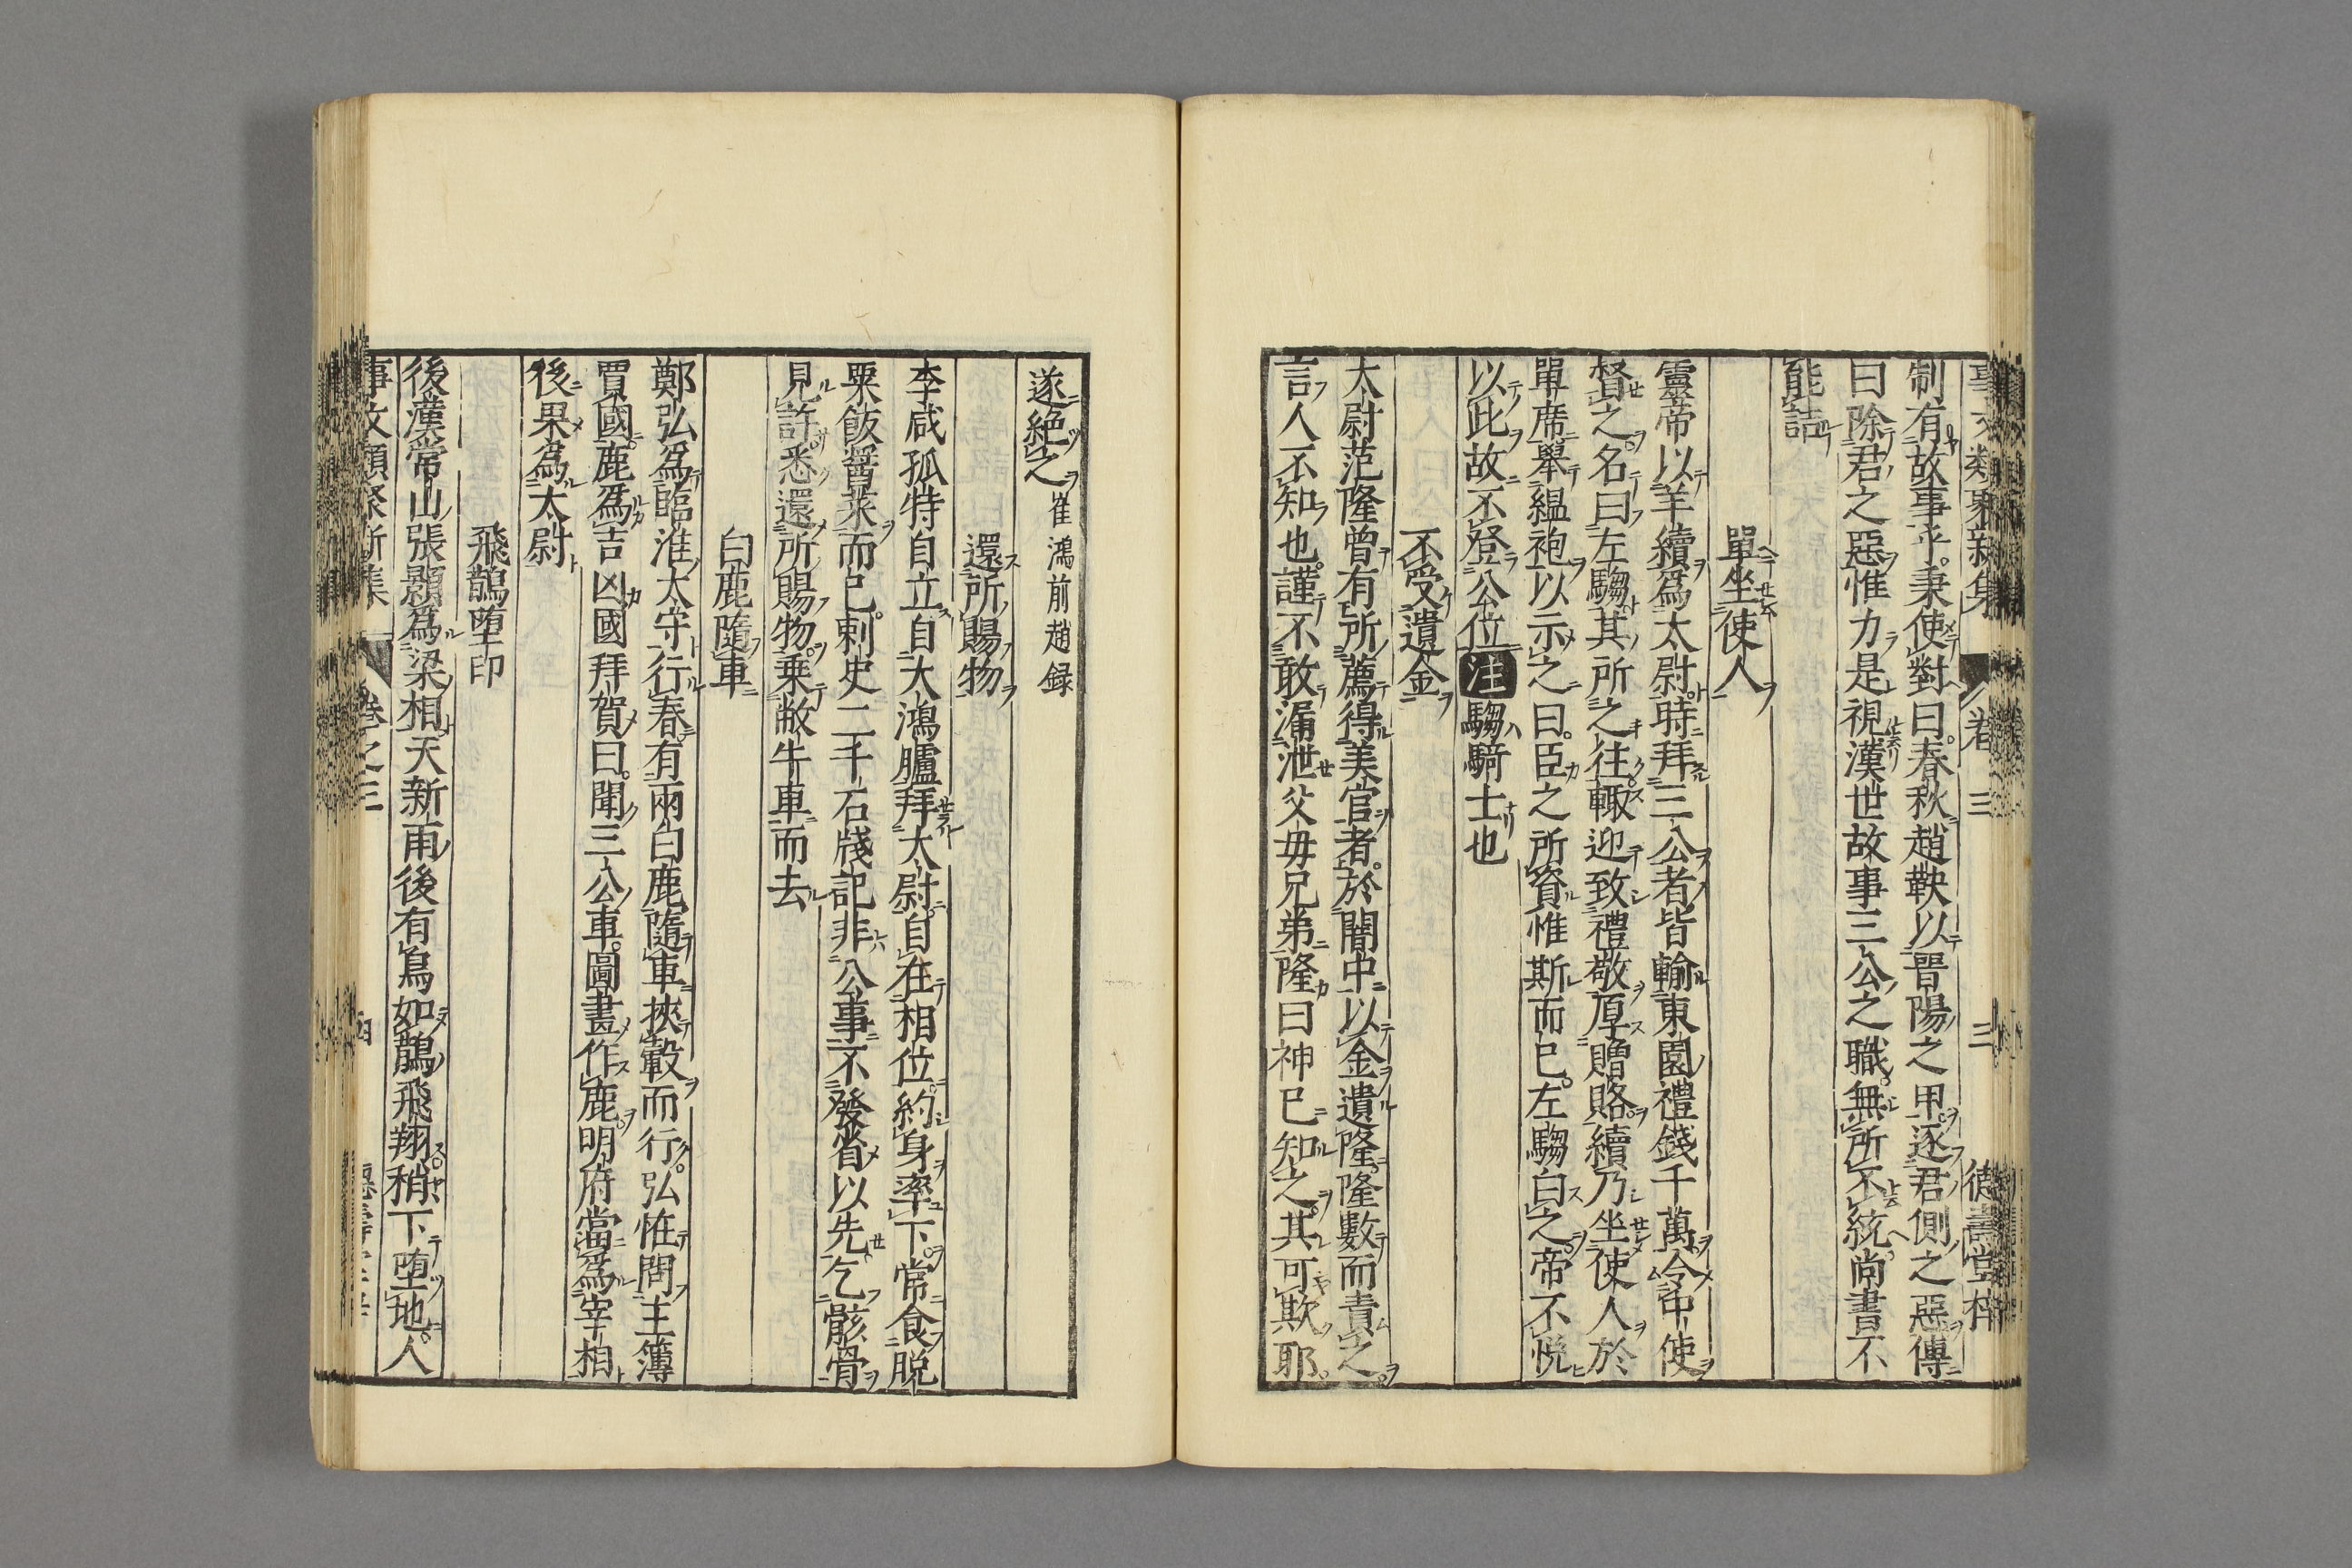 事文類聚新集 卷三 三 德壽堂梓
制有故事乎。秉使對曰。春秋趙鞅以晉陽之甲。逐君側之惡傳
曰除君之惡惟力是視漢世故事三公之職。無所不統。尚書不
能詰
單坐使人
靈帝以羊續爲太尉時拜三公者皆輸東園禮錢千萬令中使
督之。名曰左騶其所之往。輙迎致禮敬厚贈賂。續乃坐使人於
單席舉緼袍以示之曰。臣之所資惟斯而已。左騶白之。帝不悦
以此故不登公位注騶騎士也
不受遺金
太尉范隆曾有所薦得美官者。於闇中以金遺隆。隆數而責之。
言人不知也。謹不敢漏泄父毋兄弟隆曰神已知之。其可欺耶。
遂絶之崔鴻前趙録
還所賜物
李咸孤特自立自大鴻臚拜大尉。自在相位。約身率下。常食脱
粟飯醤菜而已。刺史二千石牋記非公事不發省以先乞骸骨
見許悉還所賜物。乗敝牛車而去
白鹿隨車
鄭弘爲臨淮太守行春。有兩白鹿隨車挾轂而行。弘恠問主簿
賈國。鹿爲吉凶國拜賀曰。聞三公車。圖畫作鹿。明府當爲宰相
後果爲太尉
飛鵲墮印
後漢常山張顥爲梁相天新雨後有鳥如鵲飛翔。稍下墮地。人
事文類聚新集 卷之三 四